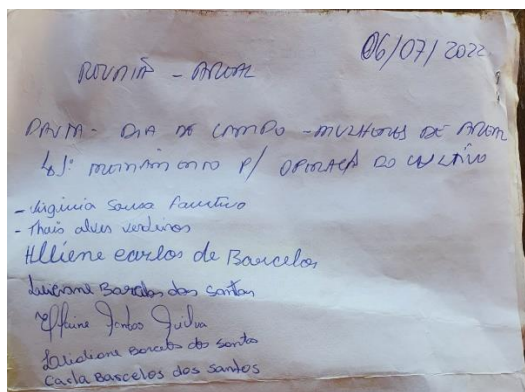 06/07/2022
REUNIÃO - AREAL
PAUTA - DIA DE CAMPO - MULHERES DE AREAL
P/ OPERAÇÃO DO CULTIVO
- Virginia Sousa Faustino
- Thais alves verdeiros
Alliene carlos de Barcelos
Luciane Barcelos dos Santos
Lucidiane Barcelos dos Santos
Carla Barcelos dos santos